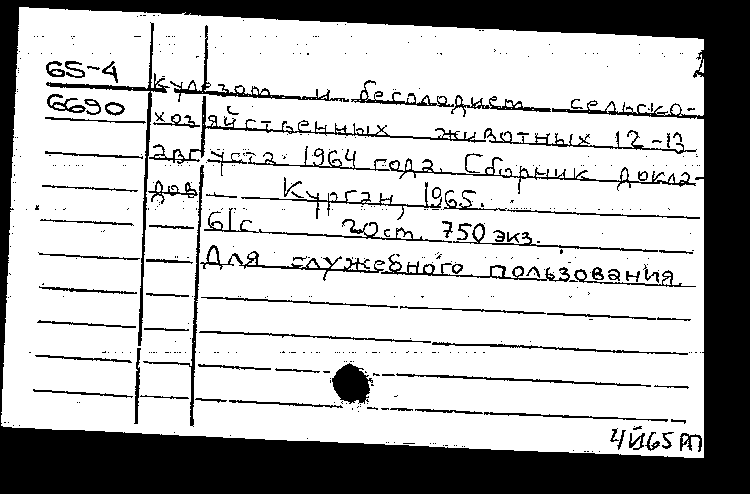 2
65-4
6690
кулезом и бесплодием сельско-
хозяйственных животных 12-13
августа 1964 года. Сборник докла-
дов Курган, 1965.
61с. 20см. 750 экз.
Для служебного пользования.
4Й65РП